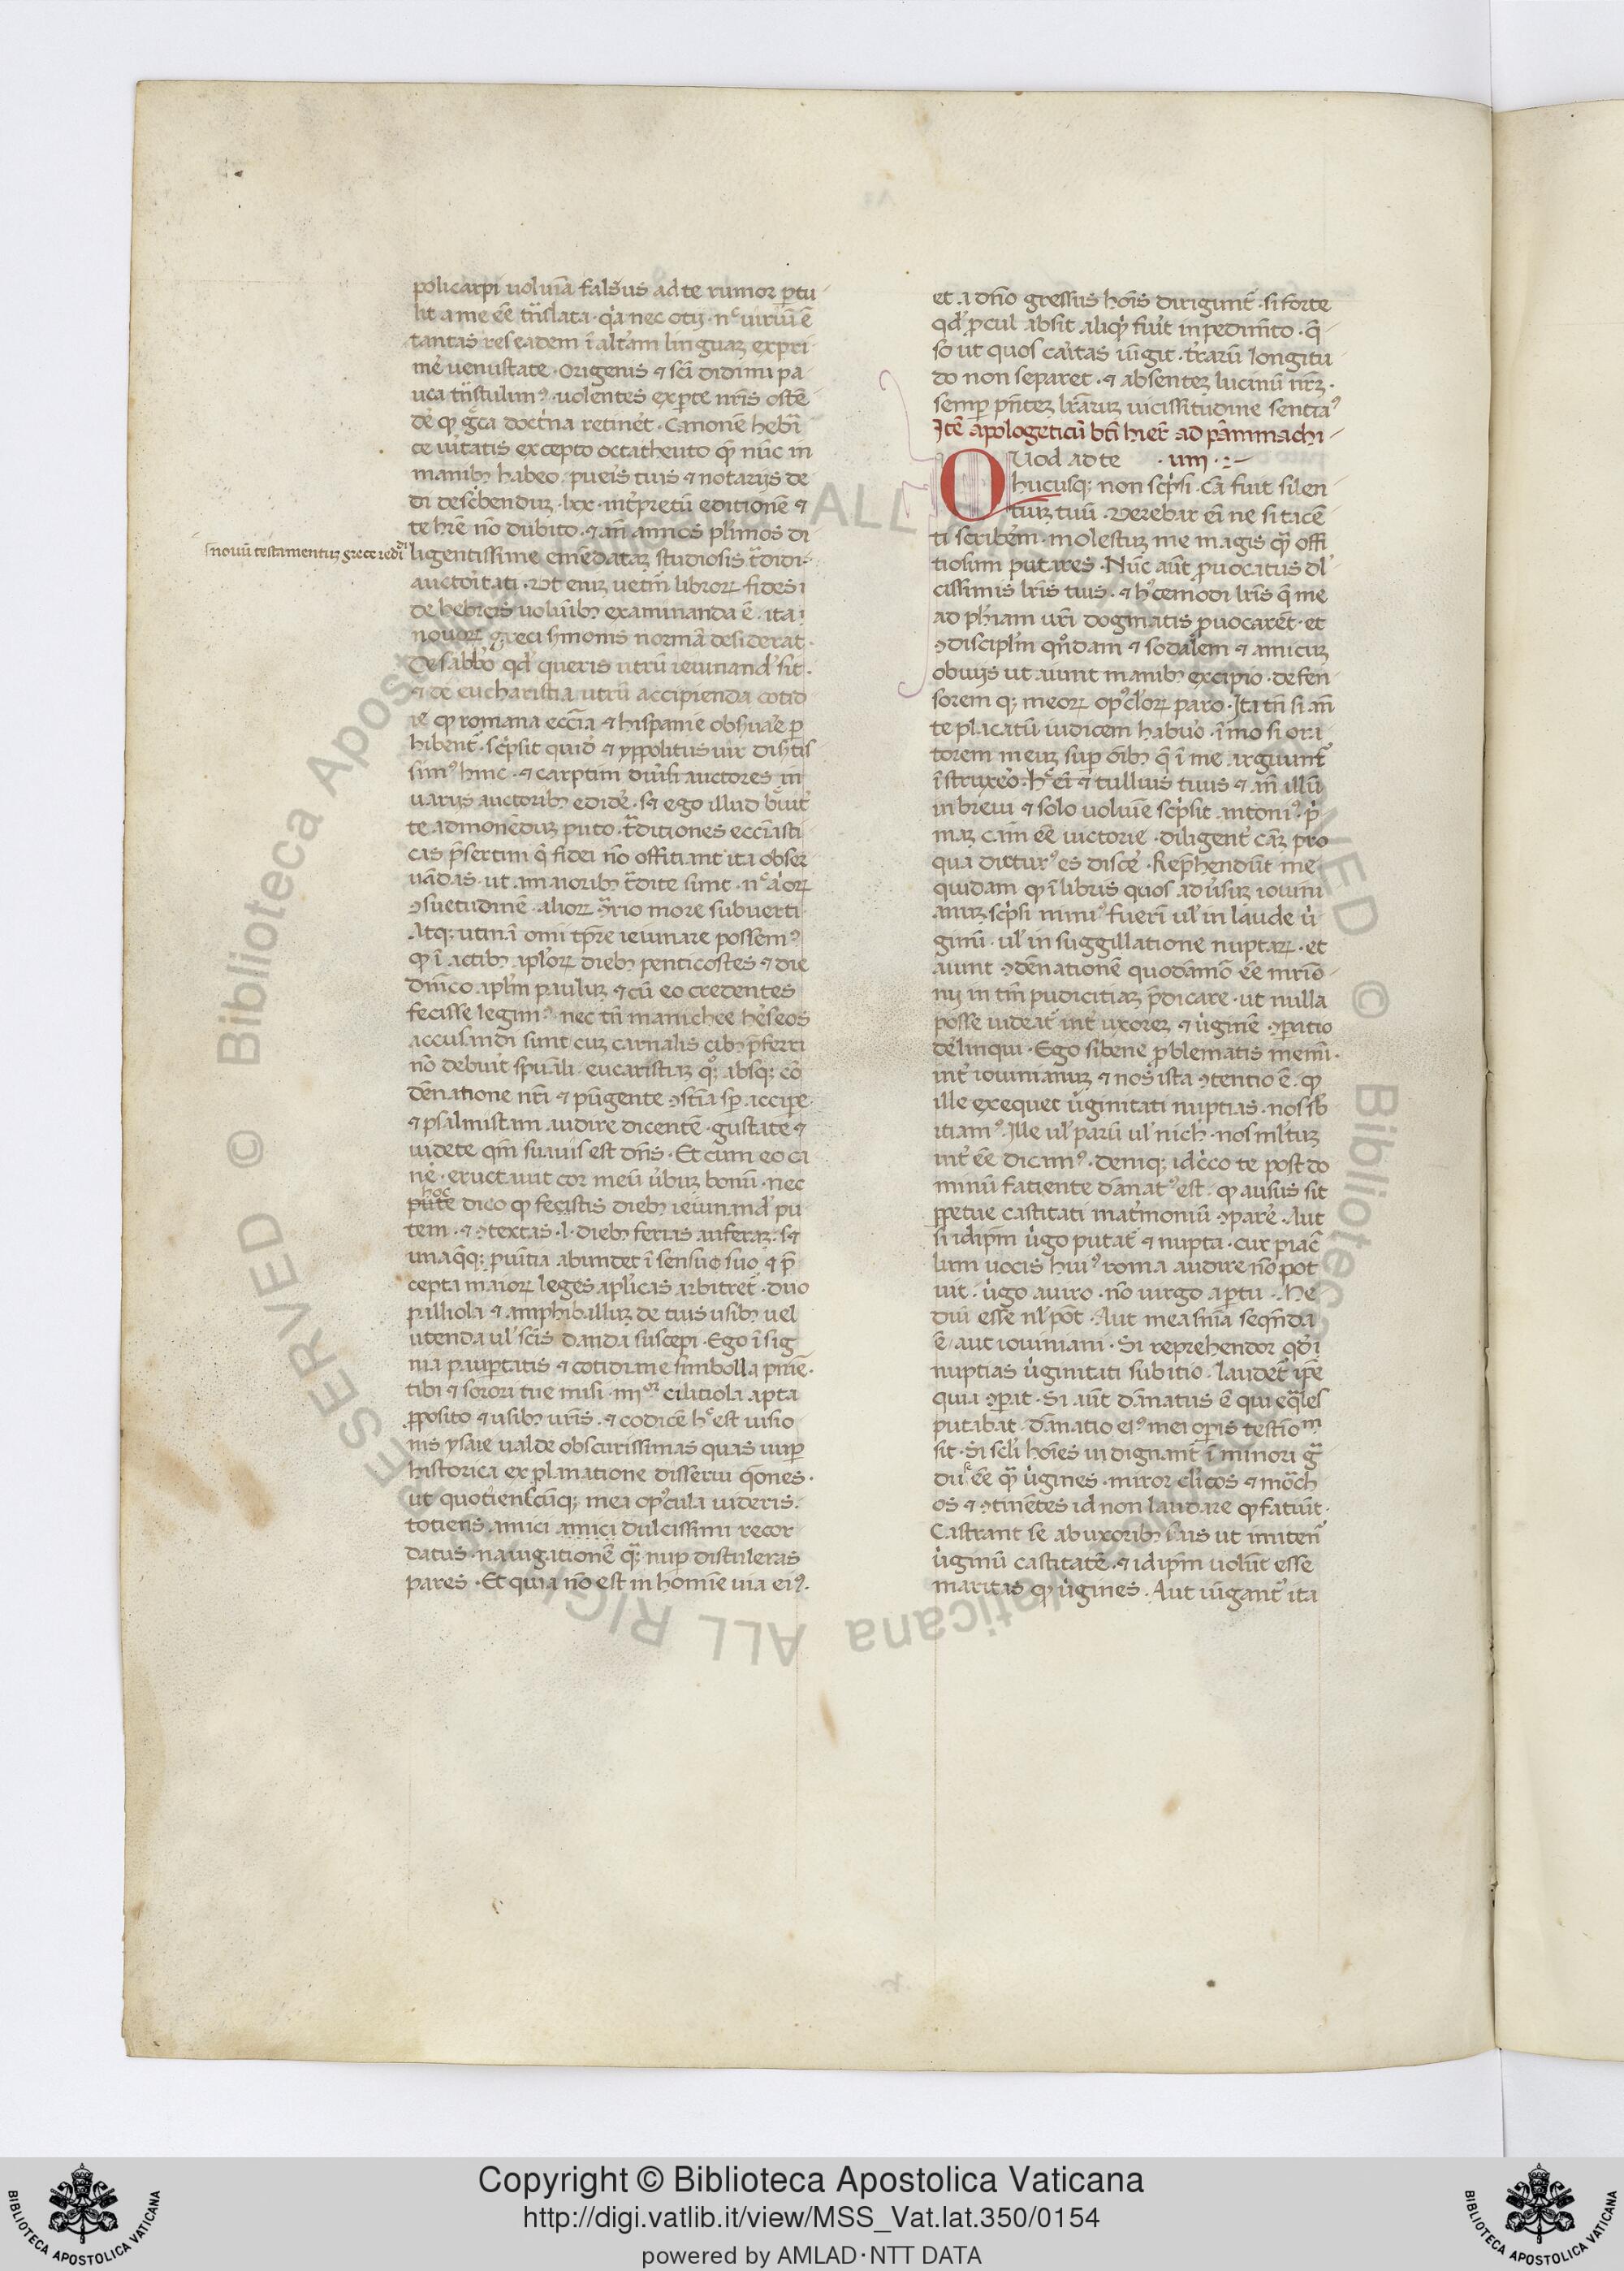 policarpi uolumīa falsus ad te rumor ꝑtu
lit a me ēe tn̄slata · qͥa nec otij · nᶜ uiriū ē
tantas res eadem ī altam linguaʒ expri
me᷑ uenustate · Origenis ⁊ sc̄i didimi pa
uca tn̄stulimꝰ · uolentes ex ꝑte nr̄is ostē
de᷑ ꝙ gͣca doctͥna retinet · Canonē hebͣi
ce uitatis excepto octatheuto qm̄ nūc in
manibꝫ habeo pueris tuis ⁊ notarijs de
di desc̓bendum · lxx · int̓pretū editionē ⁊
te hr̄e nō dubito · ⁊ an̄ annos pl̓imos di
s nouū testamentuʒ grece redͥ
ligentissime emēdataʒ studiosis tͣdidi ·
auctoritati · Vt enim uetm̄ libroꝝ fides
de hebreis uolūibꝫ examinanda ē · ita
nouoꝝ greci sermonis normā desiderat ·
De sabb̄o qd̓ queris utrū ieiunand̓ sit ·
⁊ de eucharistia utrū accipienda cotid
ie ꝙ romana ecc̄ia ⁊ hispanie obs̓uare ꝑ
hibent᷑ · sc̓psit quid̓ ⁊ yppolitus uir dis̓tis
simꝰ hinc · ⁊ carptim diu̓si auctores in
uarijs auctoribꝫ edide᷑ · sꝫ ego illud bͤuit̓
te admonēduʒ puto · tͣditiones ecc̄iasti
cas p̄sertim q̄ fidei nō offitiant ita obser
uādas · ut a maioribꝫ tͣdite sunt · nᶜ alioꝝ
ↄsuetudinē · alioꝝ ↄͣrio more subuerti ·
Atqꝫ utinā omi tp̄re ieiunare possemꝰ
ꝙ ī actibꝫ apl̓oꝝ diebꝫ penticostes ⁊ die
dn̄ico apl̓m pauluʒ ⁊ cū eo credentes
fecisse legimꝰ · nec tn̄ manichee he̓seos
accusandi sunt cuʒ carnalis cibꝰ p̄ferri
nō debuit spu̓ali · eucaristiaʒ qͦꝫ absqꝫ cō
dēnatione nr̄i ⁊ pūgente ↄstīa sꝑ accipe᷑ ·
⁊ psalmistam audire dicentē · gustate ⁊
uidete qm̄ suauis est dn̄s · Et cum eo ca
ne᷑ · eructauit cor meū u̓buʒ bonū · nec
hoc
pute dico ꝙ festis diebꝫ ieiunand̓ pu
tem · ⁊ ↄtextas · l · diebꝫ ferias auferaʒ · sꝫ
unaqͣqꝫ ꝓuītia abundet ī sensu suo ⁊ p̄
cepta maioꝝ leges apl̓icas arbitret᷑ · duo
palliola ⁊ amphiballuʒ de tuis usibꝫ uel
utenda ul̓ sc̄is danda suscepi · Ego īsig
nia pauꝑtatis ⁊ cotidiane simbolla pnīe ·
tibi ⁊ sorori tue misi · iiiiᵒʳ cilitiola apta
ꝓposito ⁊ usibꝫ ur̄is · ⁊ codicē hᶜ est uisio
nis ysaie ualde obscurissimas quas nuꝑ
historica explanatione disserui qͣones ·
ut quotienscūqꝫ mea opᶜcula uideris ·
totiens amici amici dulcissimi recor
datus · nauigationē qͣꝫ nuꝑ distuleras
pares · Et quia nō est in homīe uia eiꝰ ·
et a dn̄o gressus hoīs dirigunt᷑ · si forte
qd̓ ꝓcul absit aliqͥ fu̓it inpedimt̄o · q̄
so ut quos caritas iūgit · tr̓arū longitu
do non separet · ⁊ absentem lucinū nr̄ʒ ·
semꝑ pn̄teʒ lr̄aruʒ uicissitudine sentiaꝰ
Itē apologeticū bt̄i hier̄ ad pammachi
Quod ad te · um ·
hucusqꝫ non sc̓psi · cā fuit silen
tiuʒ tuū · Verebar em̄ ne si tacē
ti scriberem · molestuʒ me magis qͣ offi
tiosum putares · Nūc aūt ꝓuocatus dl̓
cissimis lr̄is tuis · ⁊ hᶜcemodi lr̄is q̄ me
ad ph̓iam ur̄i dogmatis ꝓuocarēt · et
ↄdiscipl̓m qn̄dam ⁊ sodalem ⁊ amicuʒ
obuijs ut aiunt manibꝫ excipio · defen
soremqꝫ meoꝝ opᶜcl̓oꝝ paro · Ita tn̄ si an̄
te placatū iudicem habuo · īmo si ora
torem meuʒ suꝑ oībꝫ q̄ ī me arguunt᷑
īstruxeo · hᶜ em̄ ⁊ tullius tuus ⁊ an̄ illū
in breui ⁊ solo uolūie sc̓psit antoniꝰ · pͥ
maʒ cām ēe uictorie · diligent̓ cāʒ pro
qua dictur̓ es disce᷑ · Rep̄hendūt me
quidam ꝙ ī libris quos adu̓suʒ iouini
anuʒ sc̓psi nimiꝰ fuerī ul̓ in laude uͥ
ginū · ul̓ in suggillatione nuptaꝝ · et
aiunt ↄdēnationē quodāmō ēe mrīo
nij in tm̄ pudicitiaʒ p̄dicare · ut nulla
posse uideat᷑ int̓ uxoreʒ ⁊ uͥginē ↄꝑatio
de̓linqui · Ego si bene ꝓblematis memī ·
int̓ iouinianuʒ ⁊ nos ista ↄtentio ē · ꝙ
ille exequet uͥginitati nuptias · nos sb̓
itiamꝰ · Ille ul̓ parū ul̓ nich̓ · nos ml̓tuʒ
int̓ ēe dicimꝰ · deniqꝫ idcͥco te post do
minū fatiente dānatꝰ est · ꝙ ausus sit
ꝑpetue castitati matͥmoniū ↄparare · Aut
si idip̄m uͥgo putat᷑ ⁊ nupta · cur piac̄
lum uocis huiꝰ roma audire nō pot
uit · uͥgo a uiro · nō uirgo a partu · Me
diū esse nl̓ pōt · Aut mea sn̄ia seqn̄da
ē aut iouiniani · Si reprehendor qd̓
nuptias uͥginitati subitio · laudet᷑ ip̄e
qui ↄꝑat · Si aūt dānatus ē qui eqͣles
putabat · dānatio eiꝰ mei oꝑis testioᵐ
sit · Si sc̄li hoīes indignant᷑ ī minori gͣ
du ēe qͣ uͥgines · miror cl̓icos ⁊ moͣch
os ⁊ ↄtinētes id non laudare ꝙ fatiūt ·
Castrant se ab uxoribꝫ suis ut imitent᷑
uͥginū castitatē · ⁊ idip̄m uolūt esse
maritas ꝙ uͥgines · Aut iūgant᷑ ita
Copyright © Biblioteca Apostolica Vaticana
http://digi.vatlib.it/view/MSS_Vat.lat.350/0154
powered by AMLAD·NTT DATA
BIBLIOTECA APOSTOLICA VATICANA
BIBLIOTECA APOSTOLICA VATICANA